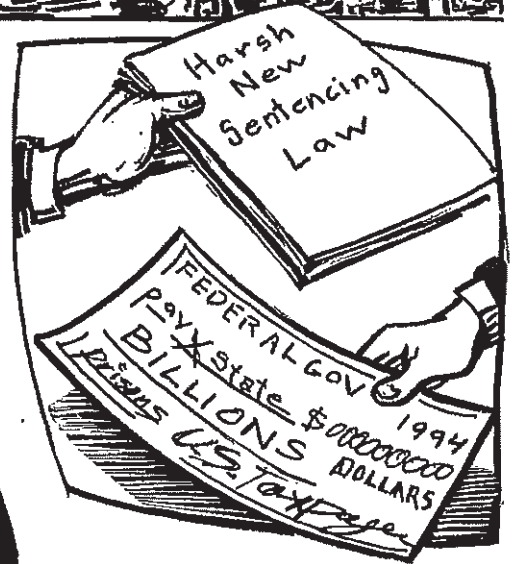 Harsh
New
Sentencing
Law
FEDERAL GOV
1994
Pay X State $000000000
BILLIONS DOLLARS
prisons U.S. Taxpayer